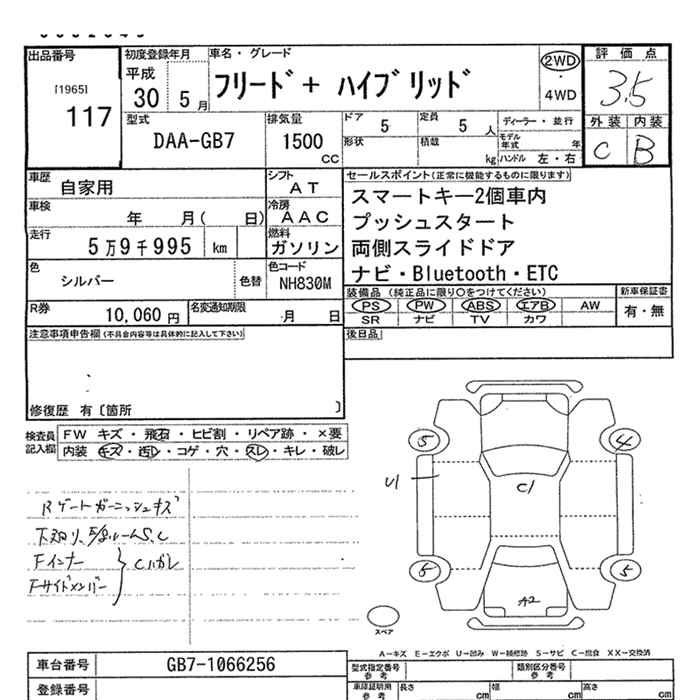 出品番号
[1965]
117
初度登録年月
平成
30 5月
車名・グレード
フリード+ ハイブリッド
2WD
・
4WD
評価点
3.5
外装 内装
C B
型式
DAA-GB7
排気量
1500
CC
ドア 5
定員 5 人
形状
積載 kg
ディーラー・並行
モデル年式 年
ハンドル 左・右
車歴
自家用
シフト
AT
車検
年 月( 日)
冷房
AAC
走行
5万9千995 km
燃料
ガソリン
色
シルバー
色替
色コード
NH830M
R券
10,060円
名変通知期限
月 日
セールスポイント(正常に機能するものに限ります)
スマートキー2個車内
プッシュスタート
両側スライドドア
ナビ・Bluetooth・ETC
装備品(純正品に限り○をつけてください)
PS PW ABS エアB AW
SR ナビ TV カワ
新車保証書
有・無
注意事項申告欄(不具合内容等は具体的に記入して下さい)
後日品
修復歴 有〔箇所 〕
検査員記入欄
FW キズ・飛石・ヒビ割・リペア跡・×要
内装 キズ・汚レ・コゲ・穴・スレ・キレ・破レ
Rゲートガーニッシュキズ
下廻り、E/gルームS、C
Fインナー
Fサイドメンバー
Cハガレ
5
4
U1
C1
5
5
A2
スペア
A−キズ E−エクボ U−凹み W−補修跡 S−サビ C−腐食 XX−交換済
車台番号
GB7-1066256
登録番号
型式指定番号
参考
類別区分番号
参考
車庫証明用
参考
長さ cm
幅 cm
高さ cm